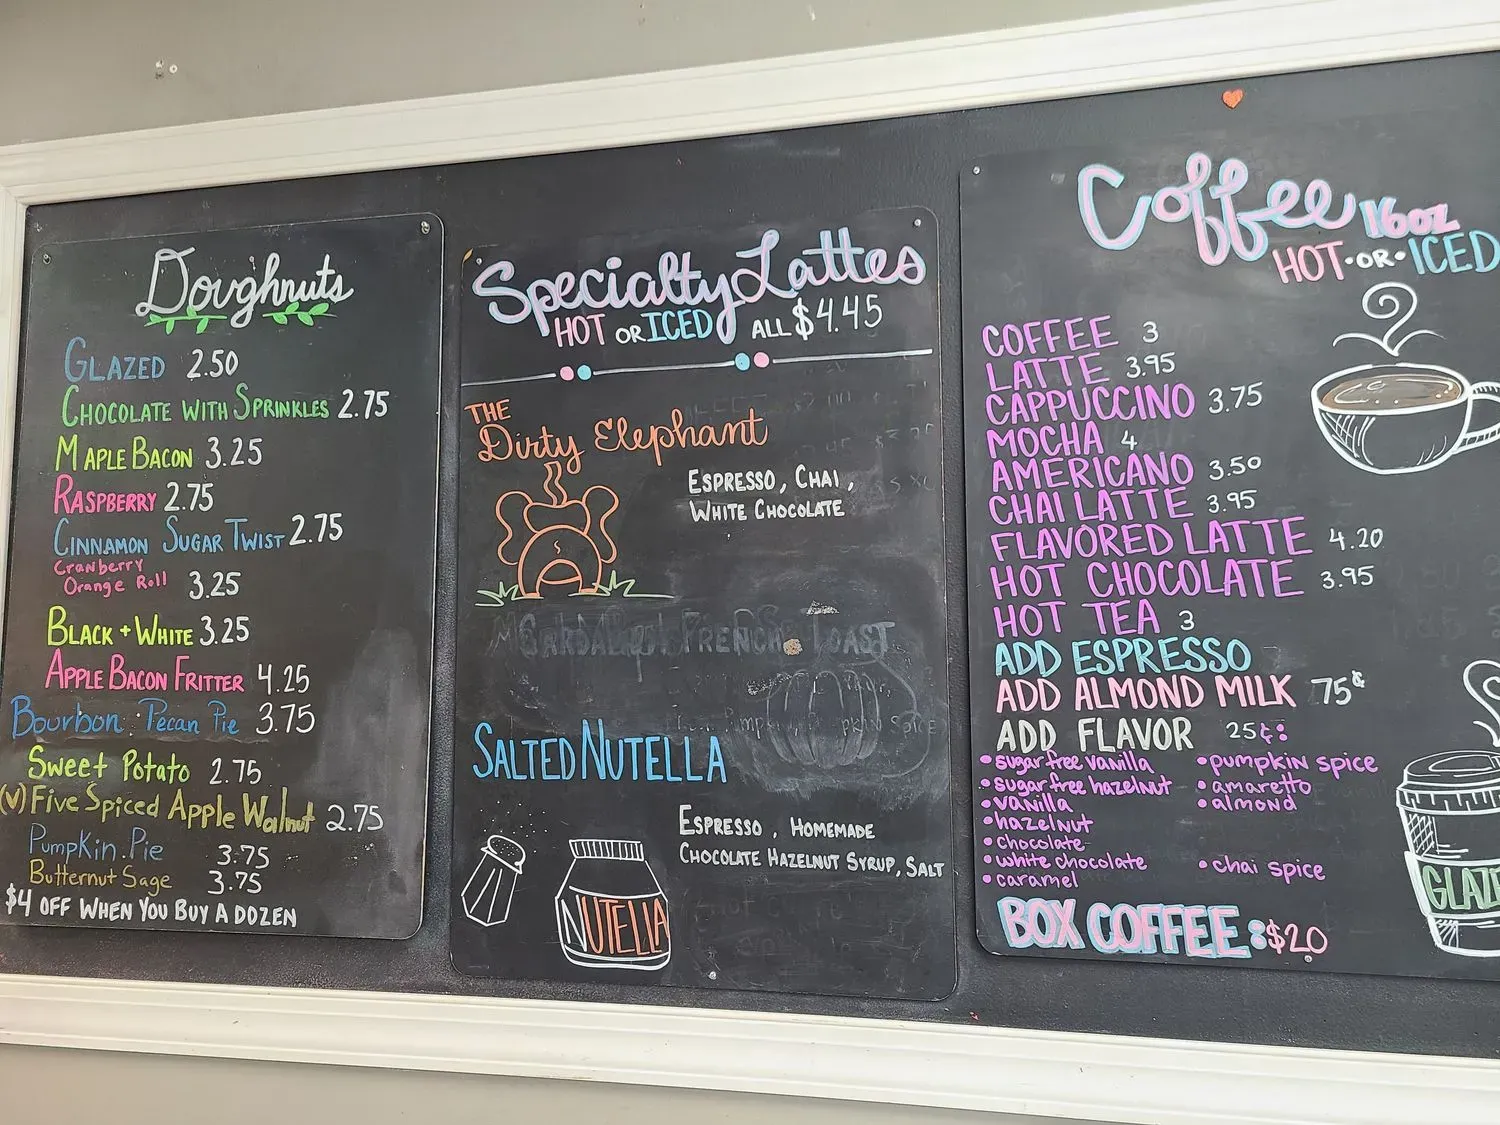 Doughnuts
GLAZED 2.50
CHOCOLATE WITH SPRINKLES 2.75
MAPLE BACON 3.25
RASPBERRY 2.75
CINNAMON SUGAR TWIST 2.75
Cranberry
Orange Roll 3.25
BLACK + WHITE 3.25
APPLE BACON FRITTER 4.25
Bourbon Pecan Pie 3.75
Sweet Potato 2.75
(V) Five Spiced Apple Walnut 2.75
Pumpkin Pie 3.75
Butternut Sage 3.75
$4 OFF WHEN YOU BUY A DOZEN
Specialty Lattes
HOT OR ICED ALL $4.45
THE
Dirty Elephant
ESPRESSO, CHAI,
WHITE CHOCOLATE
FRENCH TOAST
SALTED NUTELLA
ESPRESSO, HOMEMADE
CHOCOLATE HAZELNUT SYRUP, SALT
NUTELLA
Coffee 16oz
HOT·OR·ICED
COFFEE 3
LATTE 3.95
CAPPUCCINO 3.75
MOCHA 4
AMERICANO 3.50
CHAI LATTE 3.95
FLAVORED LATTE 4.20
HOT CHOCOLATE 3.95
HOT TEA 3
ADD ESPRESSO
ADD ALMOND MILK 75¢
ADD FLAVOR 25¢:
• sugar free vanilla
• sugar free hazelnut
• vanilla
• hazelnut
• chocolate
• white chocolate
• caramel
• pumpkin spice
• amaretto
• almond
• chai spice
BOX COFFEE: $20
GLAZE